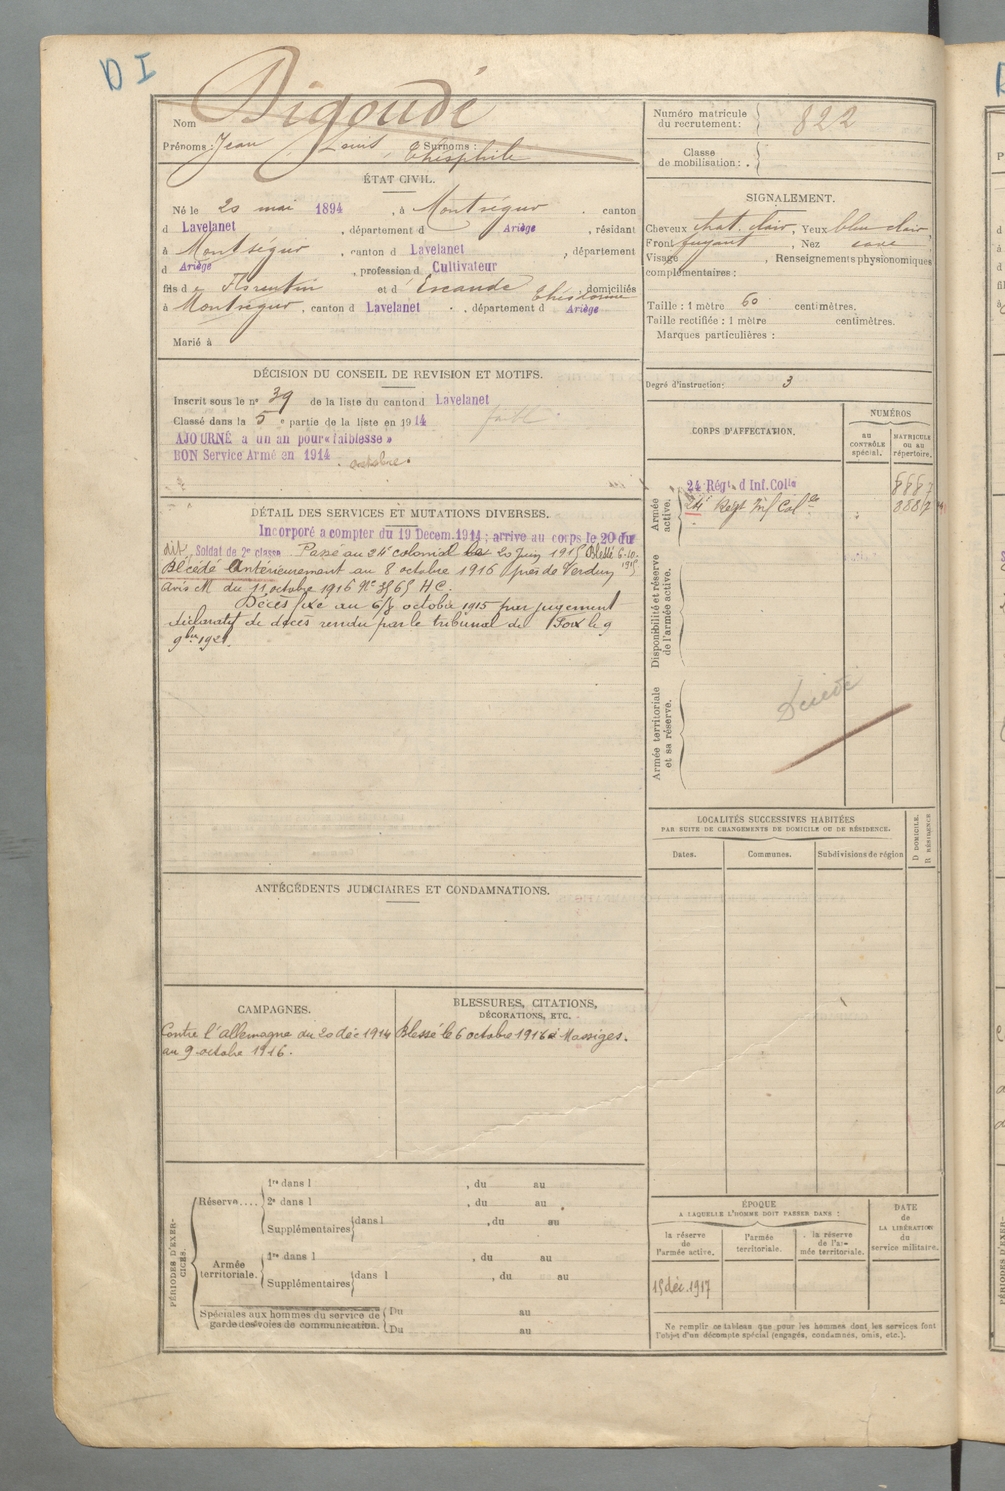 D I
Nom Digoudé
Prénoms : Jean Louis Théophile Surnoms :
Numéro matricule du recrutement : 822
Classe de mobilisation : .
ÉTAT CIVIL.
Né le 20 mai 1894, à Montségur . canton
d Lavelanet , département d Ariège , résidant
à Montségur , canton d Lavelanet , département
d Ariège , profession d Cultivateur
fils de Florentin et d' Escande , domiciliés
à Montségur , canton d Lavelanet . , département d Ariège
Marié à
SIGNALEMENT.
Cheveux chat. clair , Yeux bleu clair ,
Front fuyant , Nez cave
Visage , Renseignements physionomiques
complémentaires :
Taille : 1 mètre 60 centimètres.
Taille rectifiée : 1 mètre centimètres.
Marques particulières :
Degré d'instruction : 3
DÉCISION DU CONSEIL DE REVISION ET MOTIFS.
Inscrit sous le n° 39 de la liste du canton d Lavelanet
Classé dans la 5e partie de la liste en 1914
AJOURNÉ à un an pour « faiblesse »
BON Service Armé en 1914 octobre.
CORPS D'AFFECTATION.
NUMÉROS
au CONTRÔLE spécial.
MATRICULE ou au répertoire.
Armée active.
24 Régt d Inf. Colle 8887
24e Regt Inf Colle 8887
Disponibilité et réserve de l'armée active.
Armée territoriale et sa réserve.
Décédé
DÉTAIL DES SERVICES ET MUTATIONS DIVERSES.
Incorporé a compter du 19 Decem. 1914 ; arrive au corps le 20 du
dit, Soldat de 2e classe Passé au 24e colonial le 20 Juin 1915 Blessé 6.10. 1915
Décédé Antérieurement au 8 octobre 1916 près de Verdun
avis M du 11 octobre 1916 N° 3565 HC.
Décès fixé au 6/8 octobre 1915 par jugement
déclaratif de décès rendu par le tribunal de Foix le 9
9bre 1921.
LOCALITÉS SUCCESSIVES HABITÉES
PAR SUITE DE CHANGEMENTS DE DOMICILE OU DE RÉSIDENCE.
Dates. Communes. Subdivisions de région
D DOMICILE. R RÉSIDENCE
ANTÉCÉDENTS JUDICIAIRES ET CONDAMNATIONS.
CAMPAGNES.
Contre l'allemagne du 20 déc 1914
au 9 octobre 1916.
BLESSURES, CITATIONS,
DÉCORATIONS, ETC.
Blessé le 6 octobre 1916 à Massiges.
PÉRIODES D'EXERCICES.
Réserve....
1re dans l , du au
2e dans l , du au
Supplémentaires dans l , du au
Armée territoriale.
1re dans l , du au
Supplémentaires dans l , du au
Spéciales aux hommes du service de
garde des voies de communication.
Du au
Du au
ÉPOQUE
A LAQUELLE L'HOMME DOIT PASSER DANS :
la réserve de l'armée active.
l'armée territoriale.
la réserve de l'armée territoriale.
DATE de LA LIBÉRATION du service militaire.
15 déc. 1917
Ne remplir ce tableau que pour les hommes dont les services font
l'objet d'un décompte spécial (engagés, condamnés, omis, etc.).